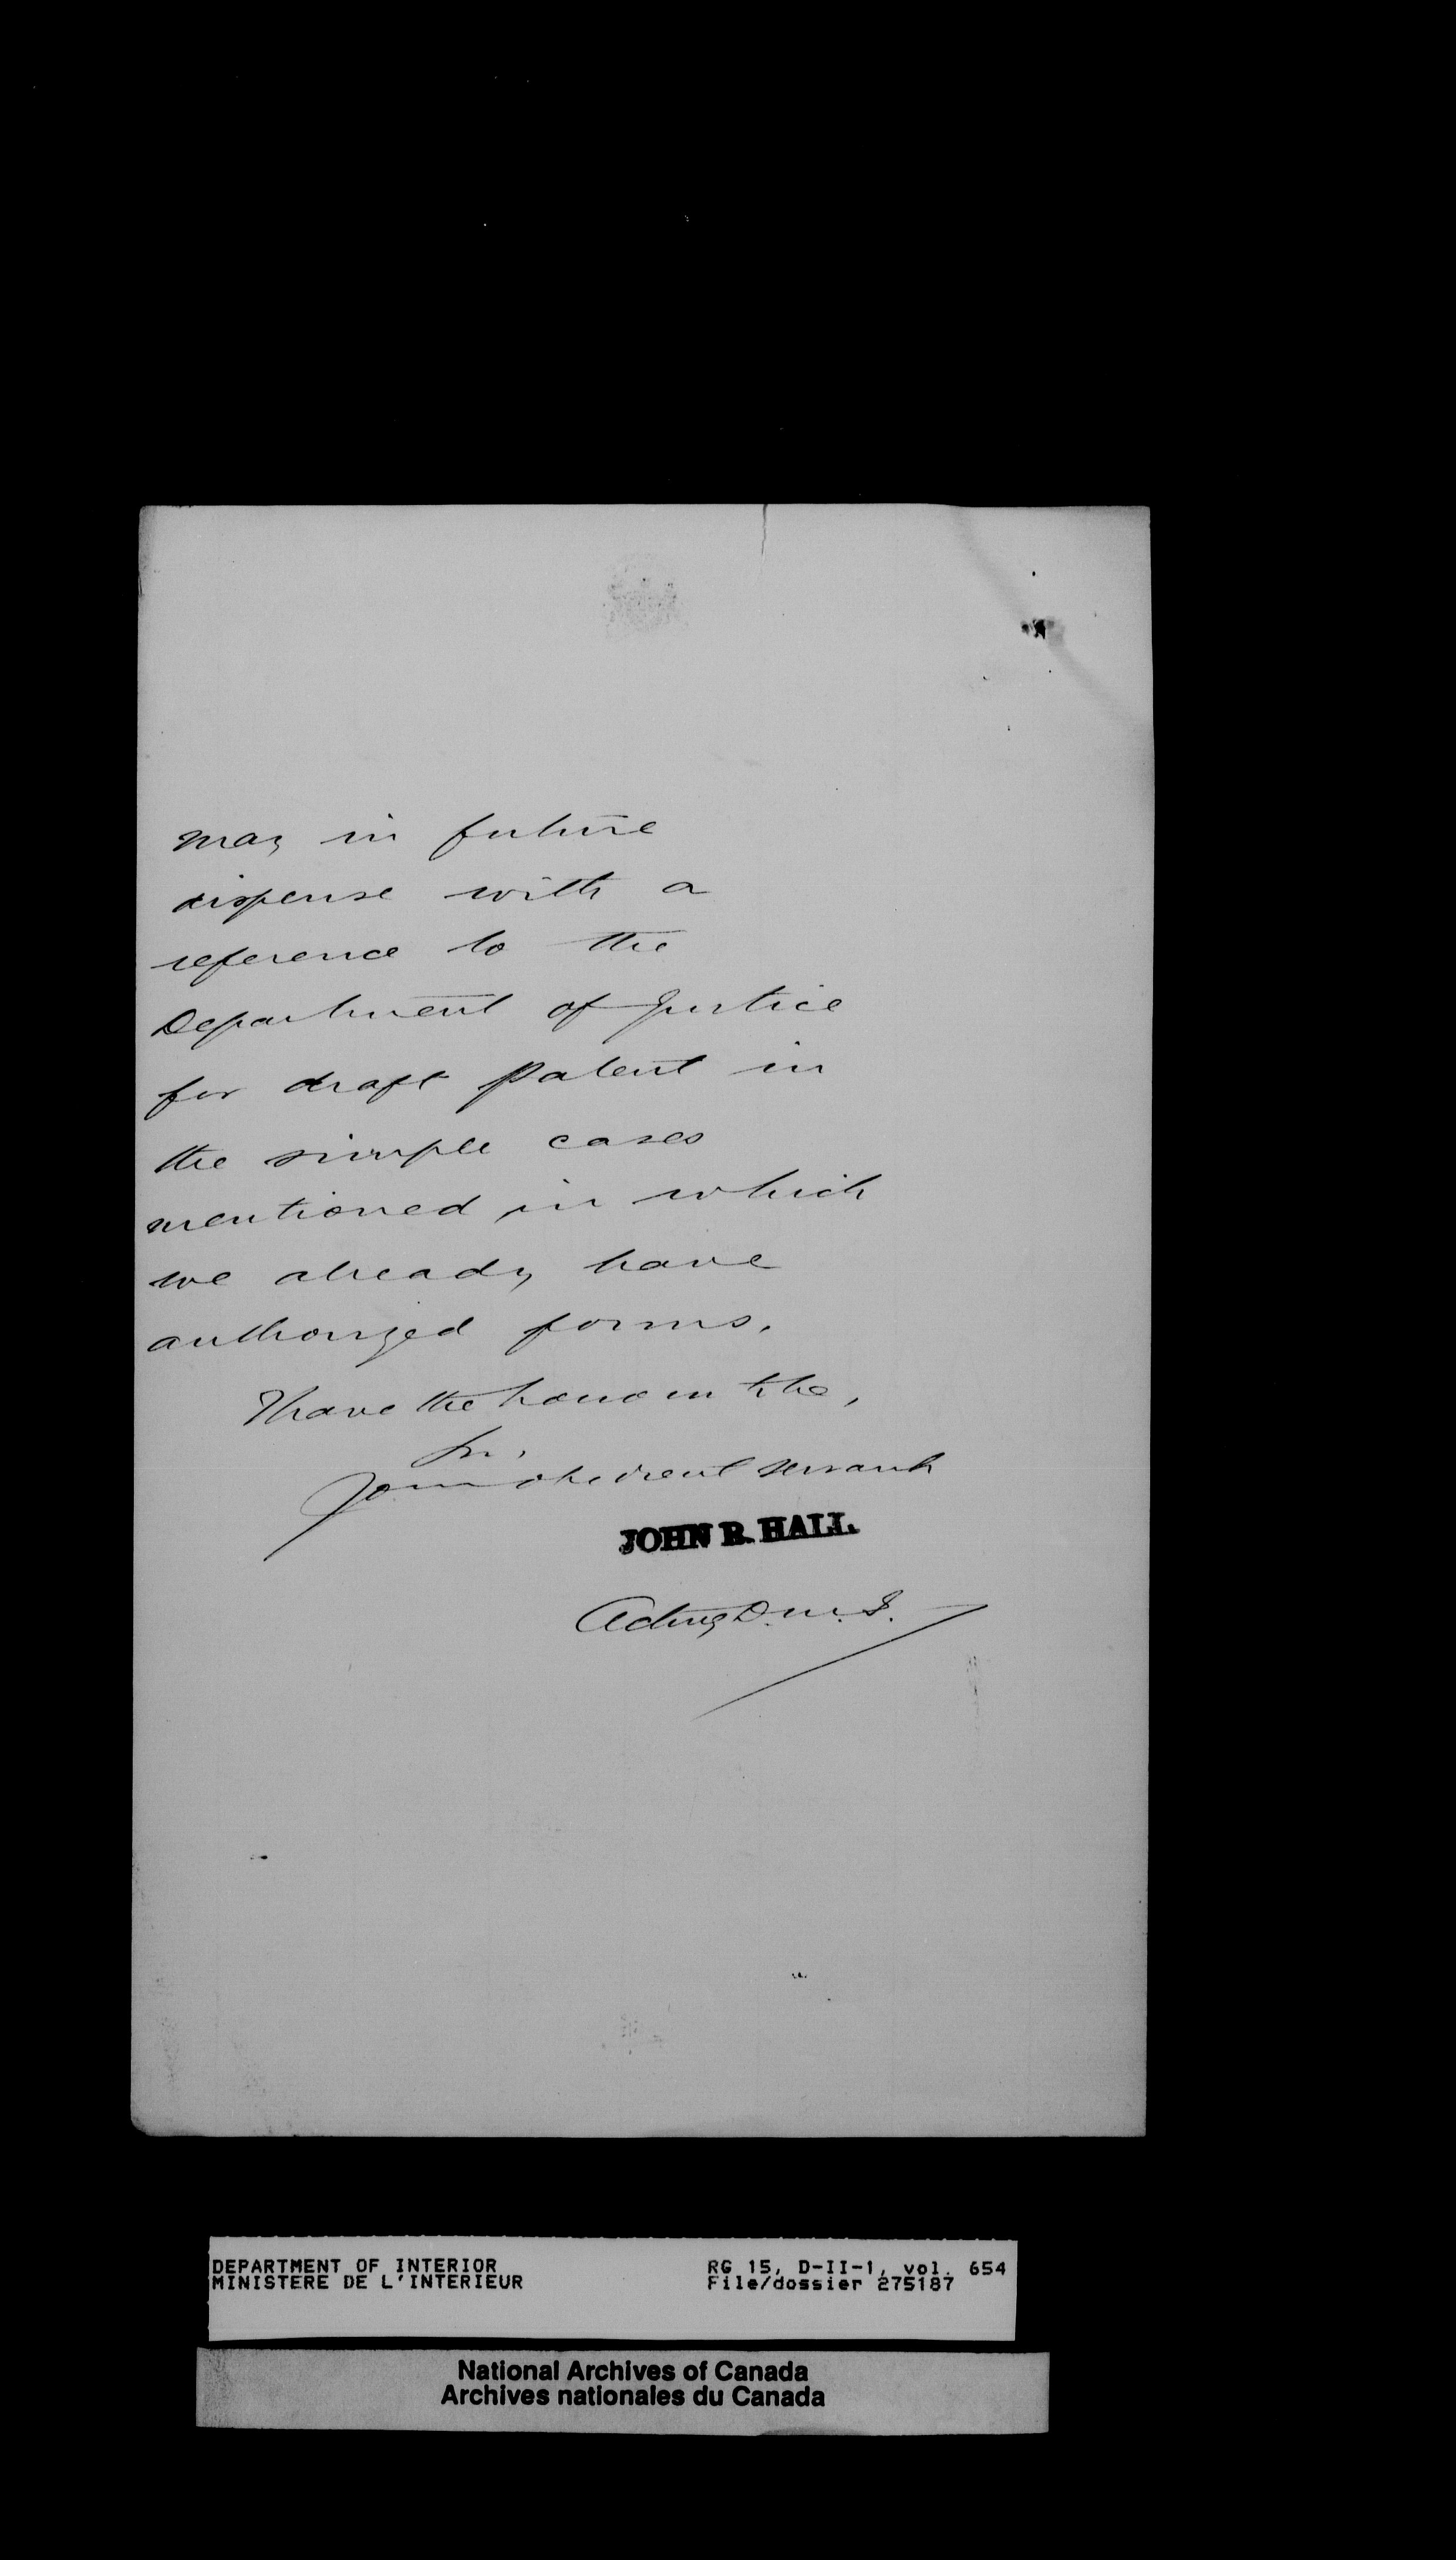 may in future
dispense with a
reference to the
Department of Justice
for draft Patent in
the simple cases
mentioned in which
we already have
authorized forms.
I have the honour to be,
Sir,
Your obedient servant
JOHN R. HALL.
Acting D.M.I.
DEPARTMENT OF INTERIOR RG 15, D-II-1, vol. 654
MINISTERE DE L'INTERIEUR File/dossier 275187
National Archives of Canada
Archives nationales du Canada